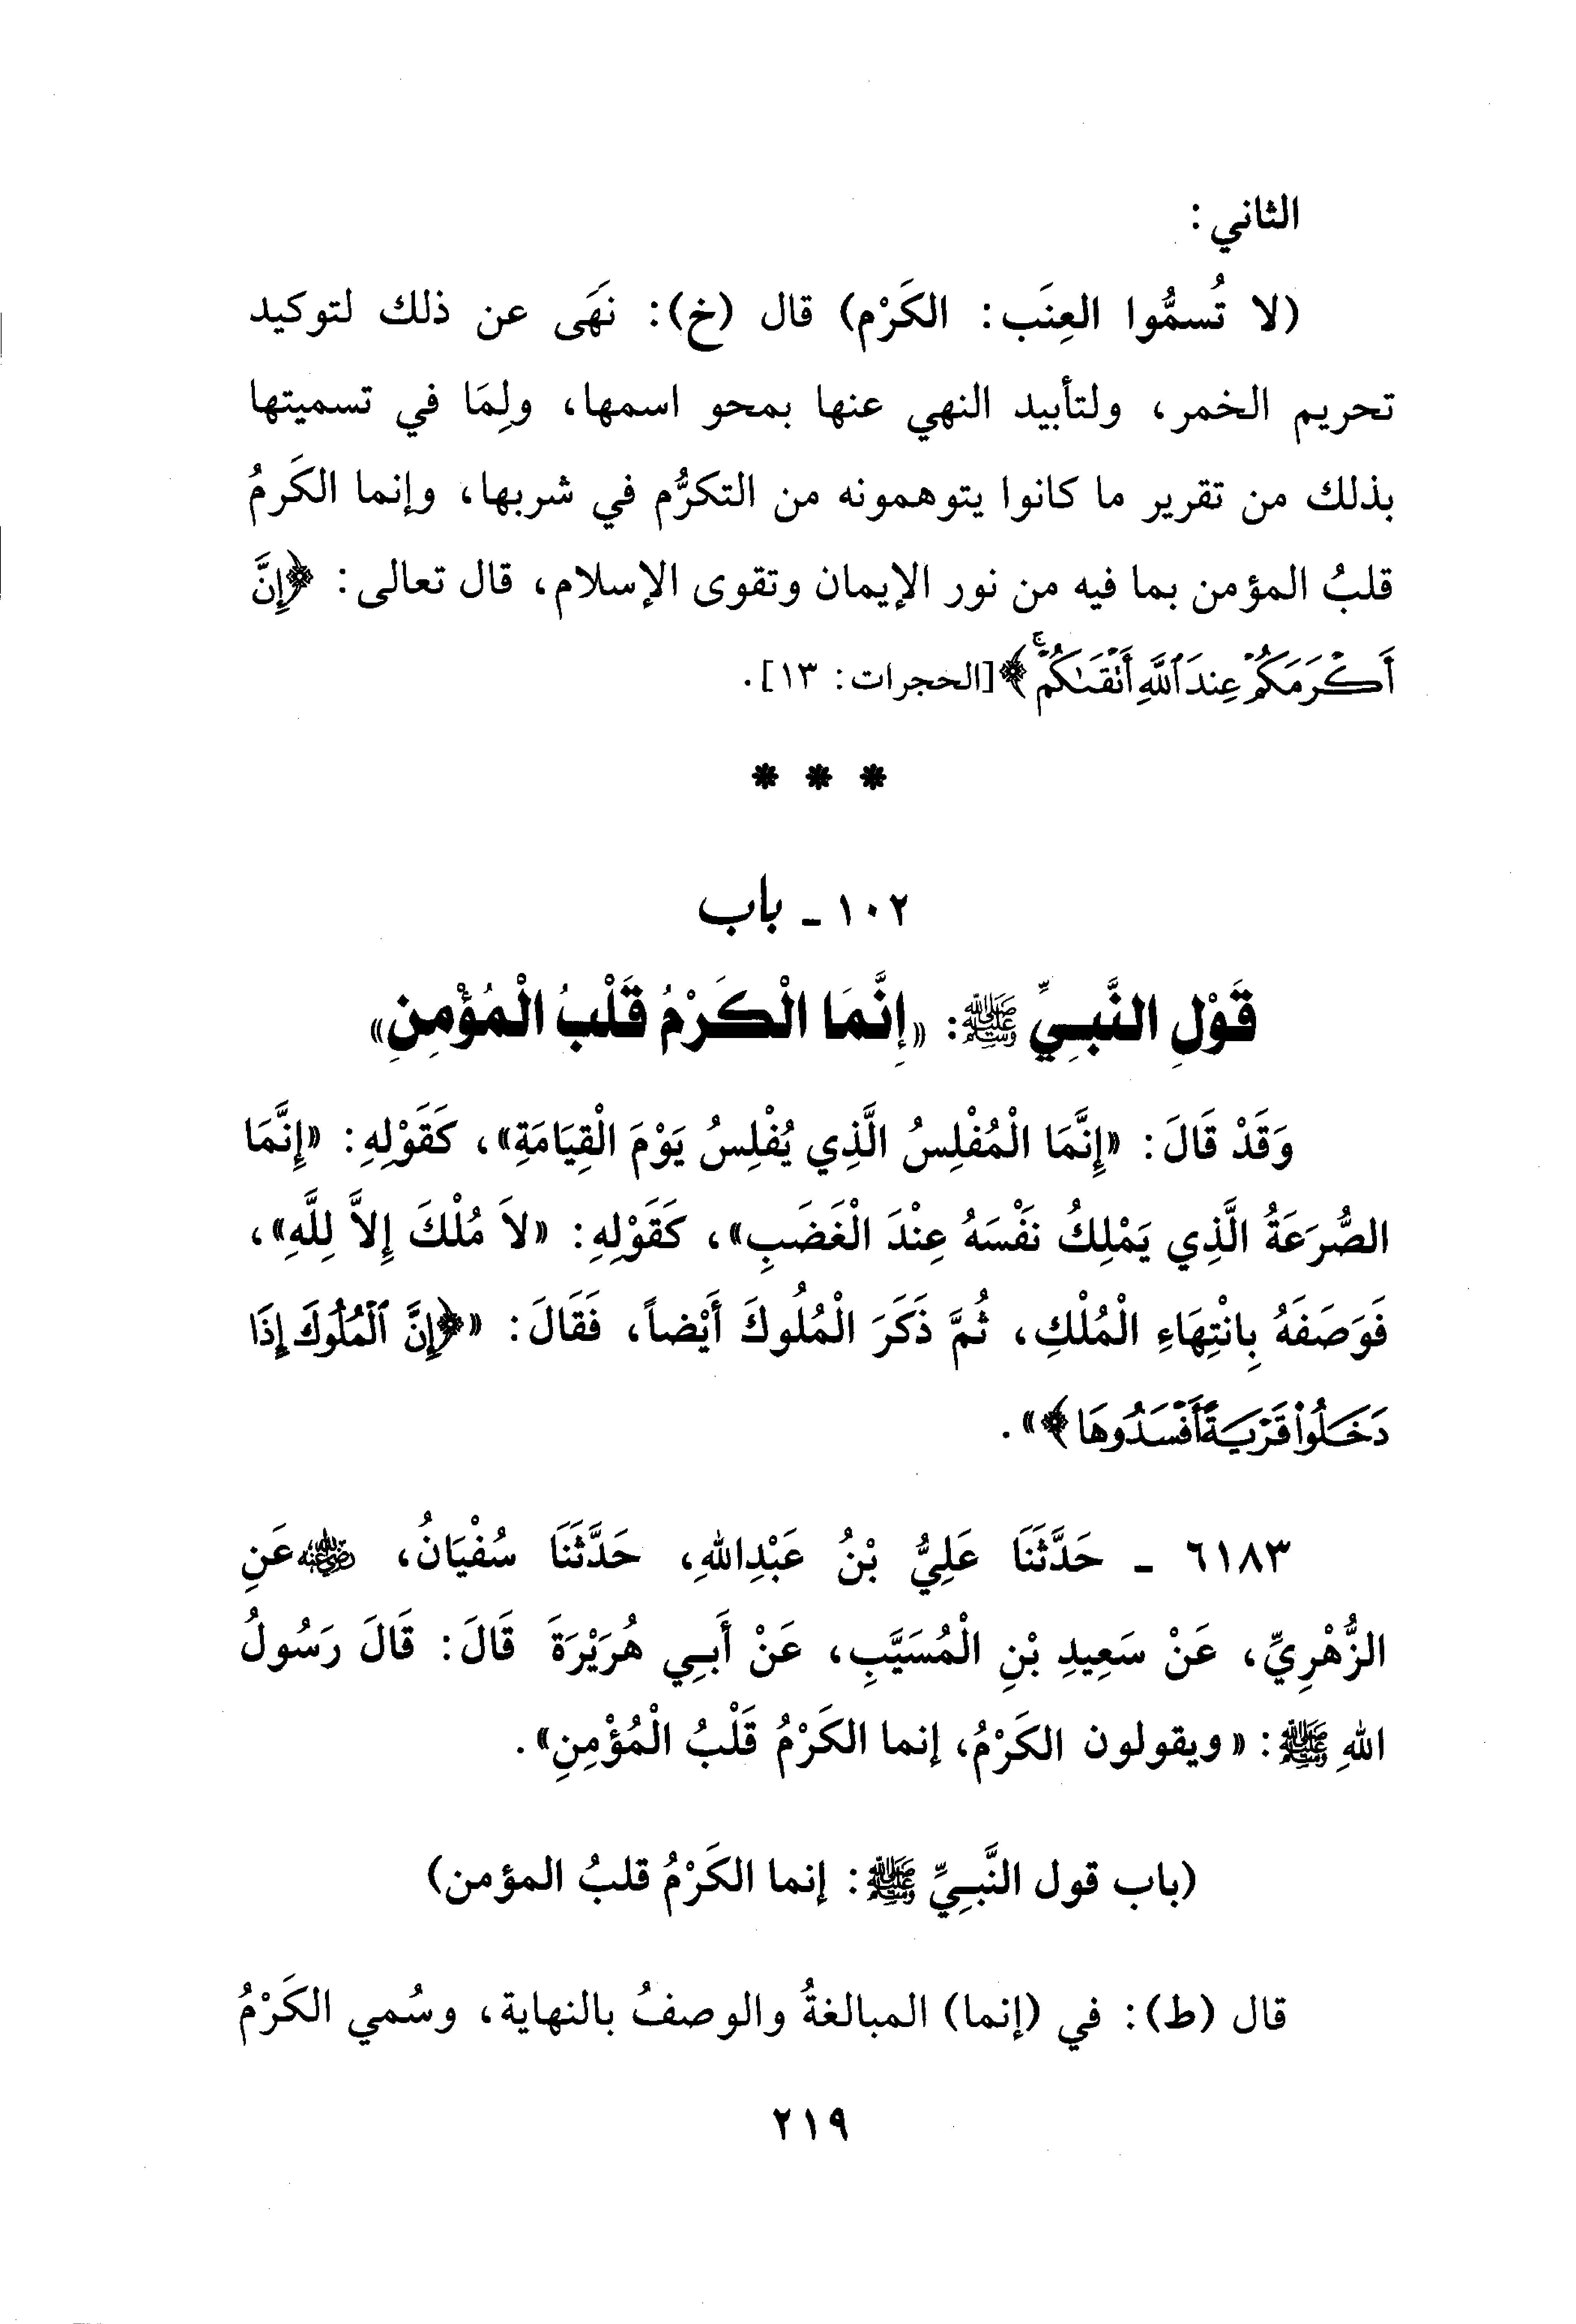 الثاني:
(لا تُسمُّوا العِنَب: الكَرْم) قال (خ): نَهَى عن ذلك لتوكيد
تحريم الخمر، ولتأبيد النهي عنها بمحو اسمها، ولِمَا في تسميتها
بذلك من تقرير ما كانوا يتوهمونه من التكرُّم في شربها، وإنما الكَرمُ
قلبُ المؤمن بما فيه من نور الإيمان وتقوى الإسلام، قال تعالى: ﴿إِنَّ
أَكْرَمَكُمْ عِندَ ٱللَّهِ أَتْقَىٰكُمْ ۚ﴾ [الحجرات: ١٣].
* * *
١٠٢ - باب
قَوْلِ النَّبِيِّ ﷺ: «إِنَّمَا الْكَرْمُ قَلْبُ الْمُؤْمِنِ»
وَقَدْ قَالَ: «إِنَّمَا الْمُفْلِسُ الَّذِي يُفْلِسُ يَوْمَ الْقِيَامَةِ»، كَقَوْلِهِ: «إِنَّمَا
الصُّرَعَةُ الَّذِي يَمْلِكُ نَفْسَهُ عِنْدَ الْغَضَبِ»، كَقَوْلِهِ: «لاَ مُلْكَ إِلاَّ لِلَّهِ»،
فَوَصَفَهُ بِانْتِهَاءِ الْمُلْكِ، ثُمَّ ذَكَرَ الْمُلُوكَ أَيْضاً، فَقَالَ: «﴿إِنَّ ٱلْمُلُوكَ إِذَا
دَخَلُوا۟ قَرْيَةً أَفْسَدُوهَا﴾».
٦١٨٣ - حَدَّثَنَا عَلِيُّ بْنُ عَبْدِاللهِ، حَدَّثَنَا سُفْيَانُ، رضي الله عنه عَنِ
الزُّهْرِيِّ، عَنْ سَعِيدِ بْنِ الْمُسَيَّبِ، عَنْ أَبِي هُرَيْرَةَ قَالَ: قَالَ رَسُولُ
اللهِ ﷺ: «ويقولون الكَرْمُ، إنما الكَرْمُ قَلْبُ الْمُؤْمِنِ».
(باب قول النَّبِيِّ ﷺ: إنما الكَرْمُ قلبُ المؤمن)
قال (ط): في (إنما) المبالغةُ والوصفُ بالنهاية، وسُمي الكَرْمُ
٢١٩